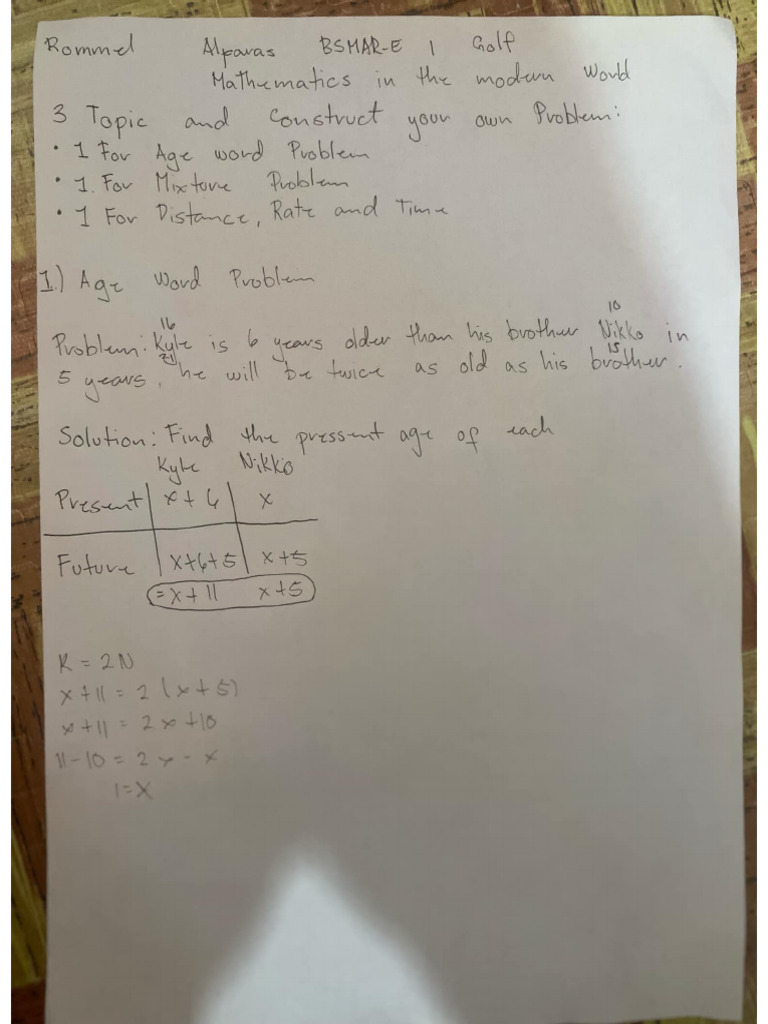 Rommel Alparas BSMAR-E 1 Golf
Mathematics in the modern World
3 Topic and Construct your own Problem:
• 1 For Age word Problem
• 1. For Mixture Problem
• 1 For Distance, Rate and Time
1.) Age Word Problem
16 10
Problem: Kyle is 6 years older than his brother Nikko in
21 15
5 years, he will be twice as old as his brother.
Solution: Find the pressent age of each
Kyle Nikko
Present x+6 x
Future x+6+5 x+5
=x+11 x+5
K = 2N
x+11 = 2 (x+5)
x+11 = 2x+10
11-10 = 2x - x
1=X